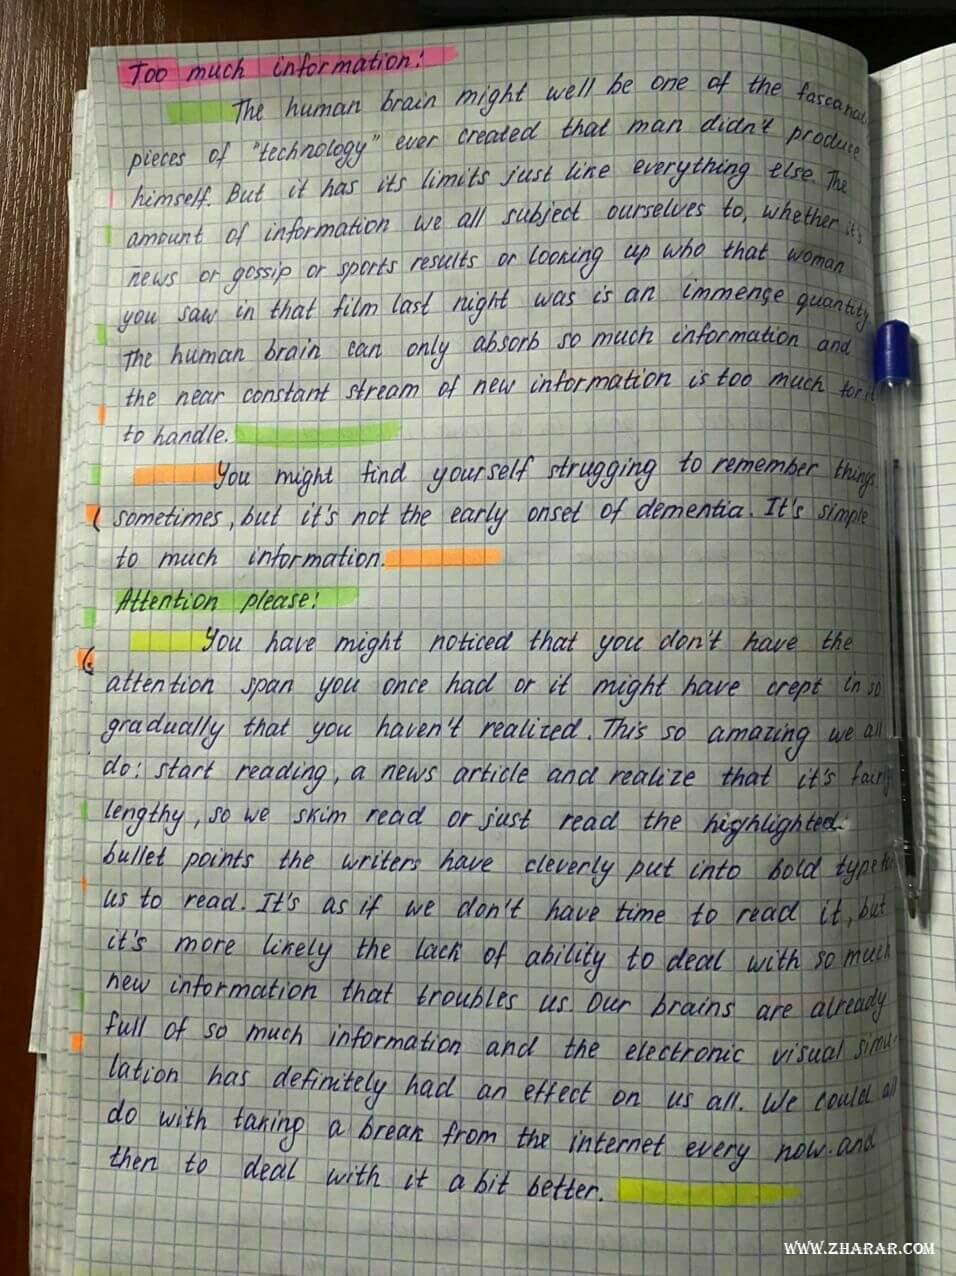 Too much information!
The human brain might well be one of the
pieces of "technology" ever created that man didn't produce
himself. But it has its limits just like everything else. The
amount of information we all subject ourselves to, whether it's
news or gossip or sports results or looking up who that woman
you saw in that film last night was is an immense quantity.
The human brain can only absorb so much information and
the near constant stream of new information is too much for it
to handle.
You might find yourself strugging to remember things
sometimes, but it's not the early onset of dementia. It's simple
to much information.
Attention please!
You have might noticed that you don't have the
attention span you once had or it might have crept in so
gradually that you haven't realized. This so amazing we all
do: start reading, a news article and realize that it's fairly
lengthy, so we skim read or just read the highlighted
bullet points the writers have cleverly put into bold type for
us to read. It's as if we don't have time to read it, but
it's more likely the lack of ability to deal with so much
new information that troubles us. Our brains are already
full of so much information and the electronic visual simu-
lation has definitely had an effect on us all. We could all
do with taking a break from the internet every now and
then to deal with it a bit better.
WWW.ZHARAR.COM